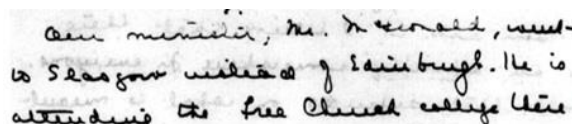 Our minister, Mr. McDonald, went
to Glasgow instead of Edinburgh. He is
attending the Free Church college there